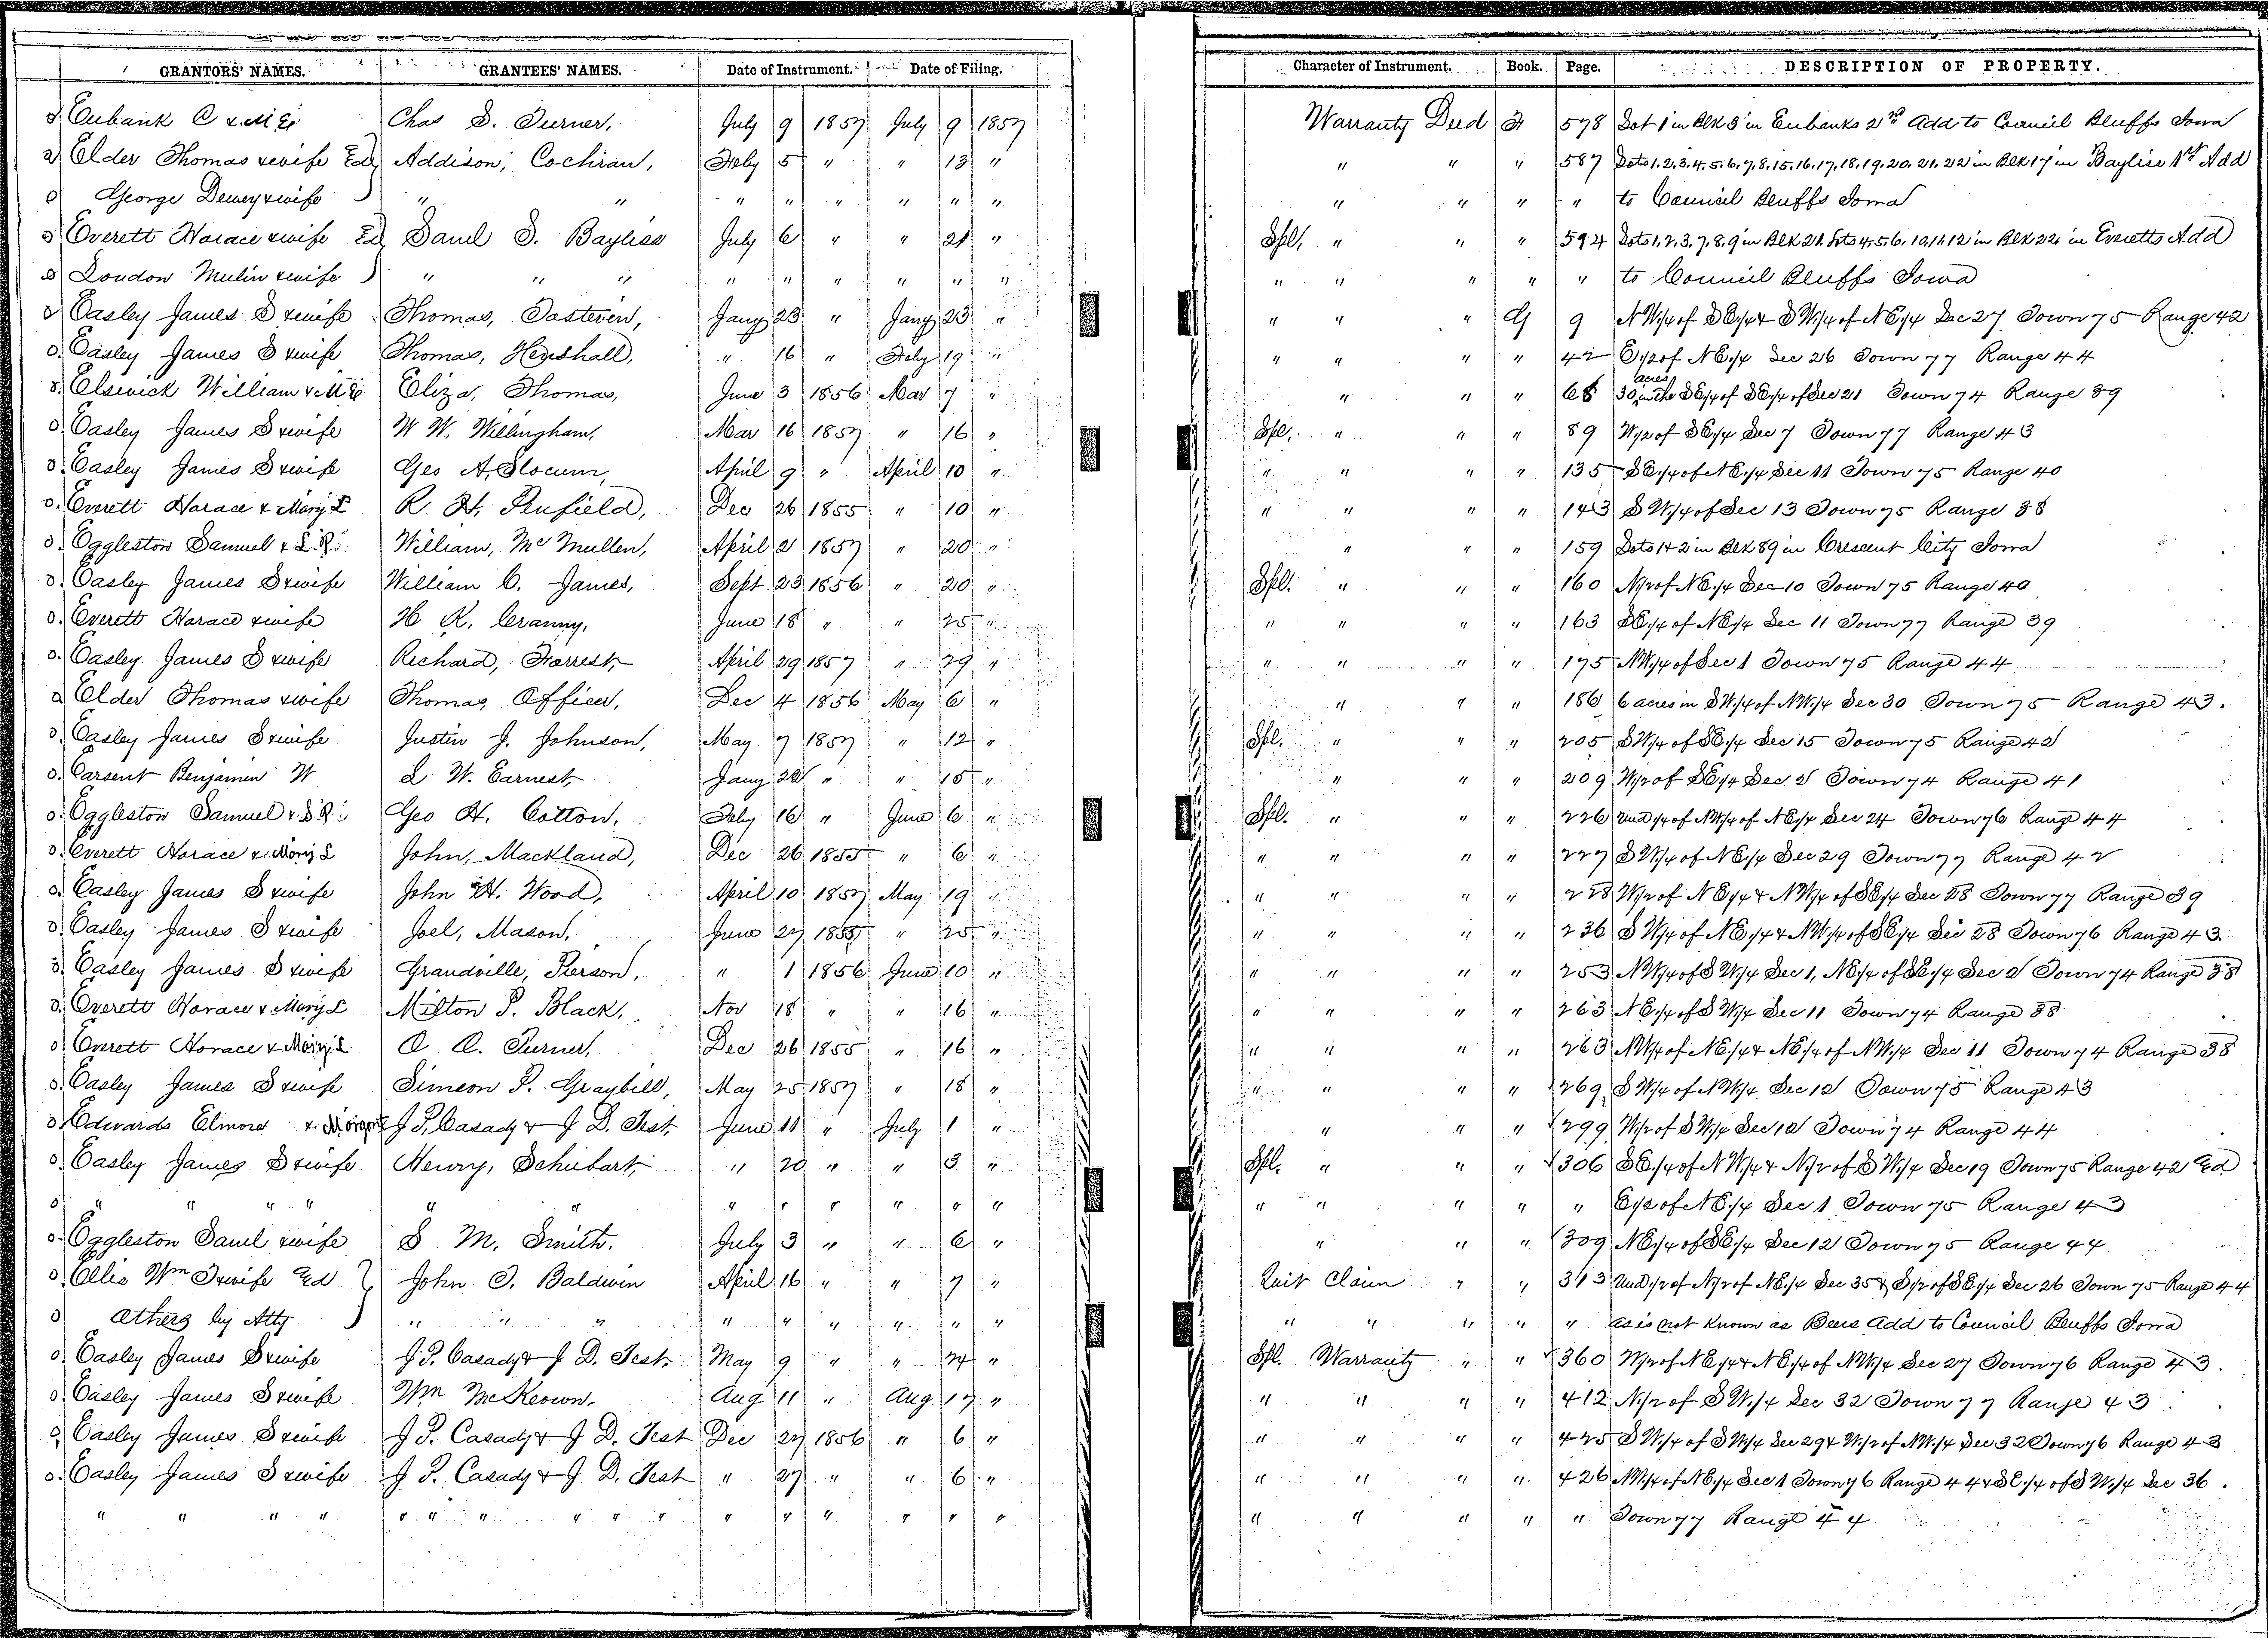 GRANTORS' NAMES. GRANTEES' NAMES. Date of Instrument. Date of Filing. Character of Instrument. Book. Page. DESCRIPTION OF PROPERTY.
Eubank C & M E Chas S. Turner, July 9 1857 July 9 1857 Warranty Deed F 578 Lot 1 in Blk 3 in Eubanks 2nd Add to Council Bluffs Iowa
Elder Thomas & wife Ed Addison, Cochran, Feby 5 " " 13 " " " " 587 Lots 1.2.3.4.5.6.7.8.15.16.17.18.19.20.21.22 in Blk 17 in Bayliss 1st Add
George Dewey & wife " " " " " " " " " " " " to Council Bluffs Iowa
Everett Horace & wife Ed Saml S. Bayliss July 6 " " 21 " Spl, " " " 594 Lots 1.2.3.7.8.9 in Blk 21. Lots 4.5.6.10.11.12 in Blk 22 in Everetts Add
London Mulin & wife " " " " " " " " " " " " " " " to Council Bluffs Iowa
Easley James S & wife Thomas, Tosteven, Jany 23 " Jany 23 " " " " G 9 NW/4 of SE/4 & SW/4 of NE/4 Sec 27 Town 75 Range 42
Easley James S & wife Thomas, Henshall, " 16 " Feby 19 " " " " " 42 E/2 of NE/4 Sec 26 Town 77 Range 44
Elswick William & M E Eliza, Thomas, June 3 1856 Mar 7 " " " " 68 30 acres in the SE/4 of SE/4 of Sec 21 Town 74 Range 39
Easley James S & wife W W. Willingham, Mar 16 1857 " 16 " Spl, " " " 89 W/2 of SE/4 Sec 7 Town 77 Range 43
Easley James S & wife Geo A, Slocum, April 9 " April 10 " " " " " 135 SE/4 of NE/4 Sec 11 Town 75 Range 40
Everett Horace & Mary L R. H, Penfield, Dec 26 1855 " 10 " " " " " 143 SW/4 of Sec 13 Town 75 Range 38
Eggleston Samuel & L.R. William, McMullen, April 2 1857 " 20 " " " " 159 Lots 1 & 2 in Blk 89 in Crescent City Iowa
Easley James S & wife William C. James, Sept 23 1856 " 20 " Spl. " " " 160 N/2 of NE/4 Sec 10 Town 75 Range 40
Everett Horace & wife H R. Cranny, June 18 " " 25 " " " " " 163 SE/4 of NE/4 Sec 11 Town 77 Range 39
Easley James S & wife Richard, Forrest, April 29 1857 " 29 " " " " " 175 NW/4 of Sec 1 Town 75 Range 44
Elder Thomas & wife Thomas, Officer, Dec 4 1856 May 6 " " " " 186 6 acres in SW/4 of NW/4 Sec 30 Town 75 Range 43.
Easley James S & wife Justin J. Johnson, May 7 1857 " 12 " Spl. " " " 205 SW/4 of SE/4 Sec 15 Town 75 Range 42
Benjamin W L. W. Earnest, Jany 22 " " 15 " " " " 209 W/2 of SE/4 Sec 2 Town 74 Range 41
Eggleston Samuel & S R. Geo H. Cotton, Feby 16 " June 6 " Spl. " " " 226 Und /4 of NW/4 of NE/4 Sec 24 Town 76 Range 44
Everett Horace & Mary L John, Mackland, Dec 26 1855 " 6 " " " " " 227 SW/4 of NE/4 Sec 29 Town 77 Range 42
Easley James S & wife John H. Wood, April 10 1857 May 19 " " " " " 228 W/2 of NE/4 & NW/4 of SE/4 Sec 28 Town 77 Range 39
Easley James S & wife Joel, Mason, June 27 1855 " 25 " " " " " 236 SW/4 of NE/4 & NW/4 of SE/4 Sec 28 Town 76 Range 43.
Easley James S & wife Grandville, Pierson, " 1 1856 June 10 " " " " " 253 NW/4 of SW/4 Sec 1, NE/4 of SE/4 Sec 2 Town 74 Range 38
Everett Horace & Mary L Milton P. Black, Nov 18 " " 16 " " " " " 263 NE/4 of SW/4 Sec 11 Town 74 Range 38
Everett Horace & Mary L A. A. Turner, Dec 26 1855 " 16 " " " " " 263 NW/4 of NE/4 & NE/4 of NW/4 Sec 11 Town 74 Range 38
Easley James S & wife Simeon P. Graybill, May 25 1857 " 18 " " " " " 269 SW/4 of NW/4 Sec 12 Town 75 Range 43
Edwards Elmore & J P. Casady & J. D. Test June 11 " July 1 " " " " 299 W/2 of SW/4 Sec 12 Town 74 Range 44
Easley James S & wife Henry, Schubart, " 20 " " 3 " Spl. " " " 306 SE/4 of NW/4 & N/2 of SW/4 Sec 19 Town 75 Range 42 Ed
" " " " " " " " " " " " " " " " " E/2 of NE/4 Sec 1 Town 75 Range 43
Eggleston Saml & wife S M. Smith. July 3 " " 6 " " " " 309 NE/4 of SE/4 Sec 12 Town 75 Range 44
Ellis Wm S & wife Ed John T. Baldwin April 16 " " 7 " Quit Claim " " 313 Und /2 of N/2 of NE/4 Sec 35 & S/2 of SE/4 Sec 26 Town 75 Range 44
Others by Atty " " " " " " " " " " " " " " as is not known as Beers Add to Council Bluffs Iowa
Easley James S & wife J. P. Casady & J D. Test May 9 " " 24 " Spl. Warranty " " 360 W/2 of NE/4 & NE/4 of NW/4 Sec 27 Town 76 Range 43.
Easley James S & wife Wm McKeown. Aug 11 " Aug 17 " " " " " 412 N/2 of SW/4 Sec 32 Town 77 Range 43
Easley James S & wife J P. Casady & J D. Test Dec 27 1856 " 6 " " " " " 425 SW/4 of SW/4 Sec 29 & W/2 of NW/4 Sec 32 Town 76 Range 43
Easley James S & wife J P. Casady & J. D. Test " 27 " " 6 " " " " " 426 NW/4 of NE/4 Sec 1 Town 76 Range 44 & SE/4 of SW/4 Sec 36.
" " " " " " " " " " " " " " " " " " " " " Town 77 Range 44